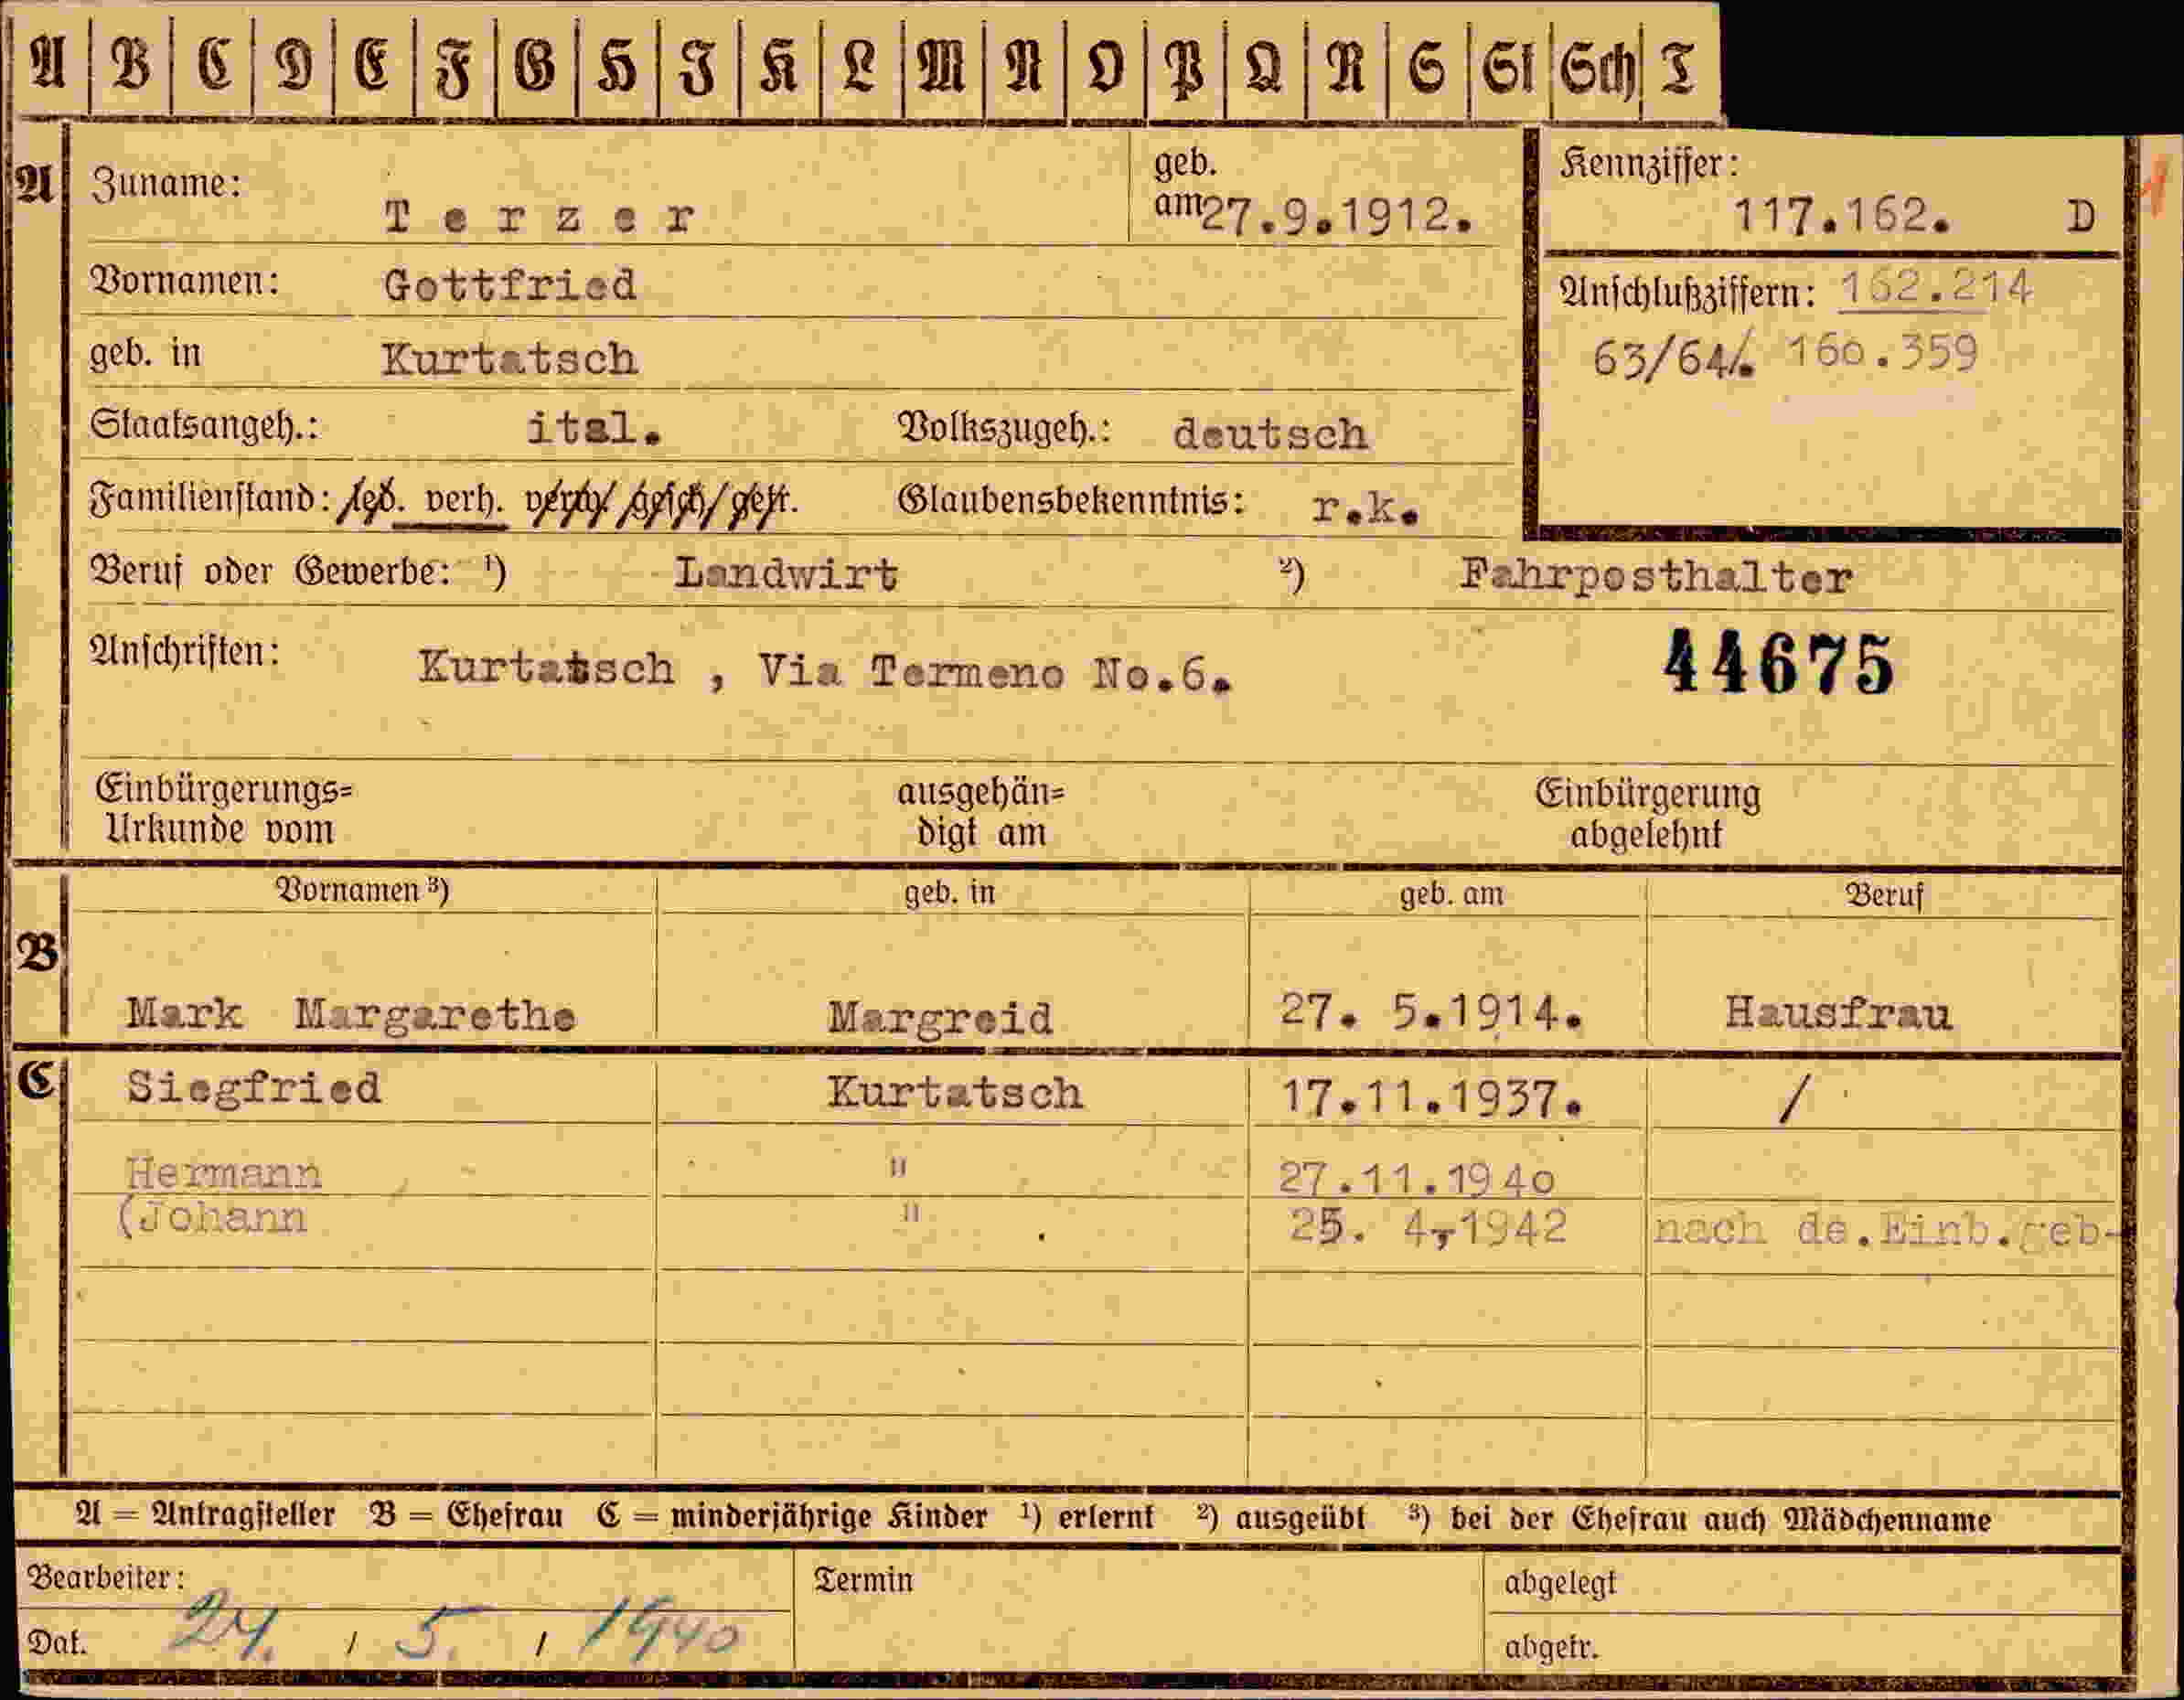 A B C D E F G H I K L M N O P Q R S St Sch T
A Zuname: Terzer geb. am 27.9.1912. Kennziffer: 117.162. D 1
Vornamen: Gottfried Anschlußziffern: 162.214
geb. in Kurtatsch 63/64/. 160.359
Staatsangeh.: ital. Volkszugeh.: deutsch
Familienstand: led. verh. verw. gesch. getr. Glaubensbekenntnis: r.k.
Beruf oder Gewerbe: ¹) Landwirt ²) Fahrposthalter
Anschriften: Kurtatsch , Via Termeno No.6. 44675
Einbürgerungs= ausgehän= Einbürgerung
Urkunde vom digt am abgelehnt
Vornamen ³) geb. in geb. am Beruf
B
Mark Margarethe Margreid 27. 5.1914. Hausfrau
C Siegfried Kurtatsch 17.11.1937. /
Hermann " 27.11.1940
(Johann " 25. 4,1942 nach de.Einb.geb-
A = Antragsteller B = Ehefrau C = minderjährige Kinder ¹) erlernt ²) ausgeübt ³) bei der Ehefrau auch Mädchenname
Bearbeiter: Termin abgelegt
Dat. 24. / 5. / 1940 abgetr.